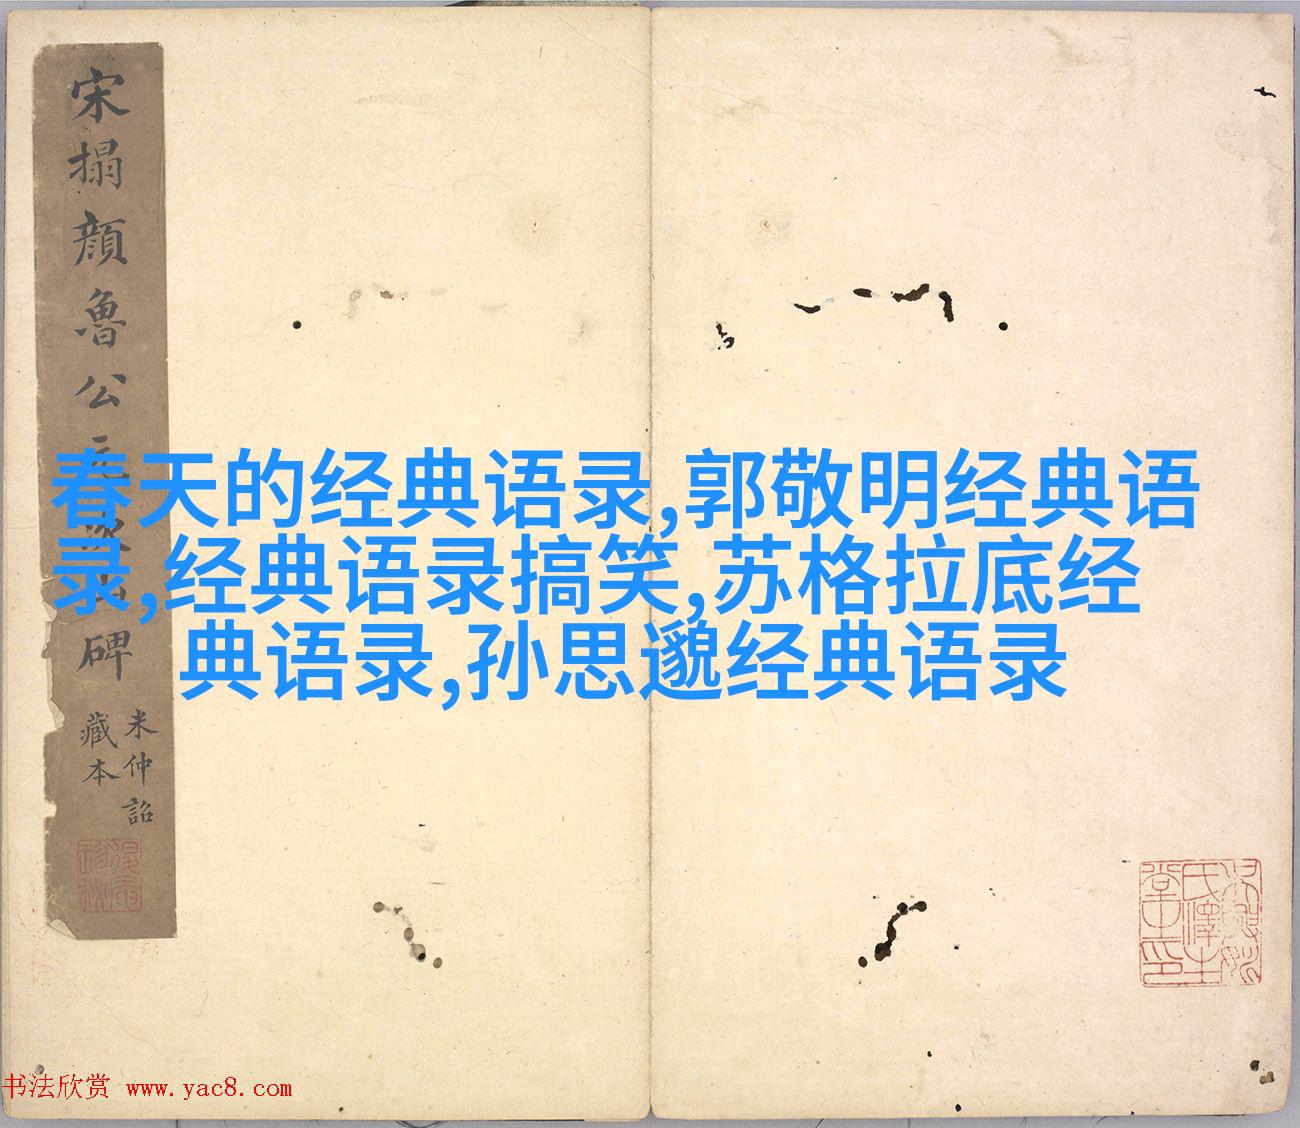 宋搨顔魯公
碑
米仲詔
藏本
春天的经典语录,郭敬明经典语
录,经典语录搞笑,苏格拉底经
典语录,孙思邈经典语录
书法欣赏 www.yac8.com